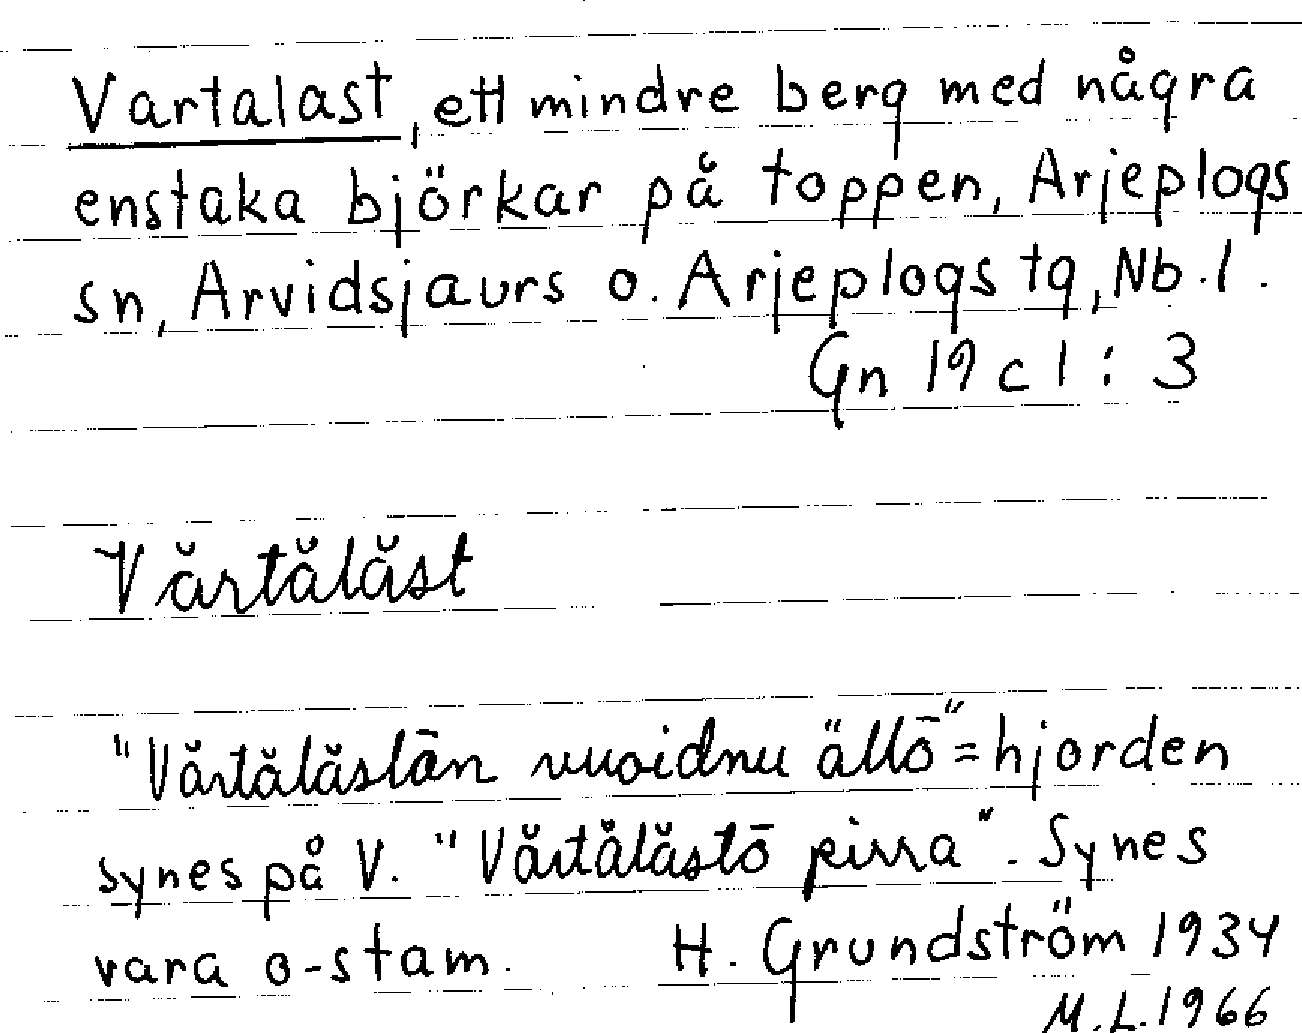 Vartalast, ett mindre berg med några
enstaka björkar på toppen, Arjeplogs
sn, Arvidsjaurs o. Arjeplogs tg, Nb. l.
Gn 19 c 1 : 3
Vărtălăst
"Vărtălăstān vuoidnu ällō" = hjorden
synes på V. "Vărtălăstō pirra". Synes
vara o-stam. H. Grundström 1934
M.L. 1966